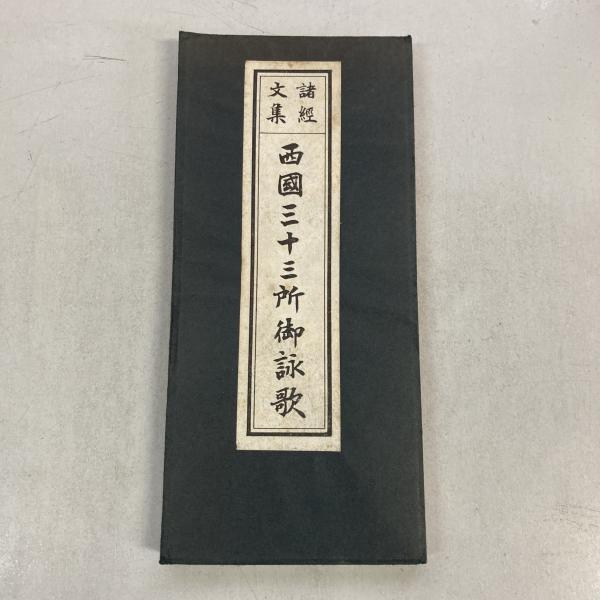 諸經
文集
西國三十三所御詠歌